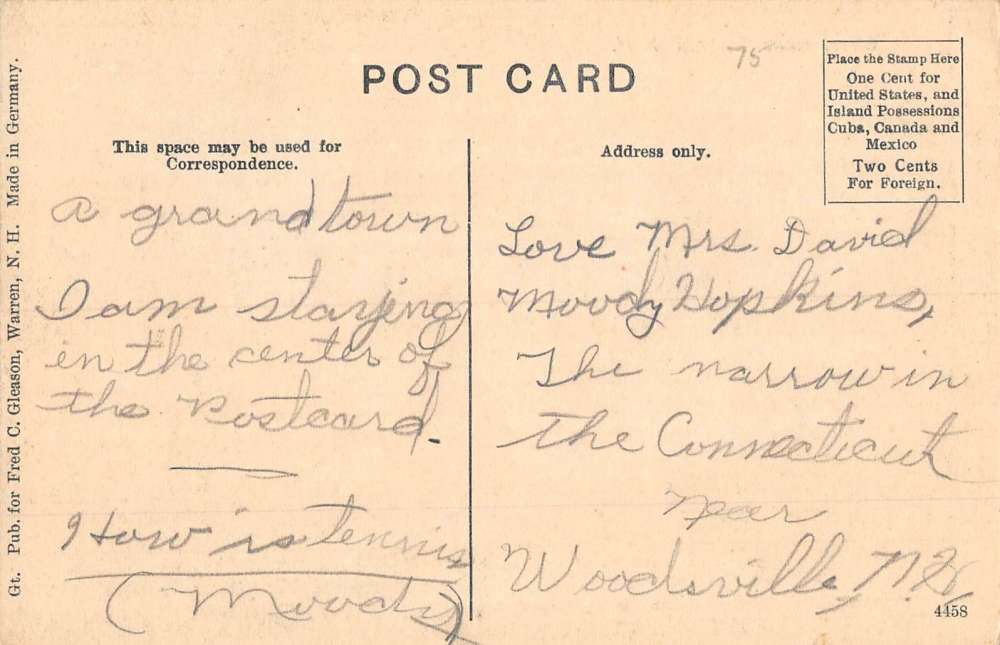 POST CARD
75
Place the Stamp Here
One Cent for
United States, and
Island Possessions
Cuba, Canada and
Mexico
Two Cents
For Foreign.
This space may be used for
Correspondence.
a grand town
I am staying
in the center of
the Postcard.
How is tennis
(Moody)
Address only.
Love Mrs. David
Moody Hopkins,
The narrow in
the Connecticut
near
Woodsville, N.H.
4458
Gt. Pub. for Fred C. Gleason, Warren, N. H. Made in Germany.